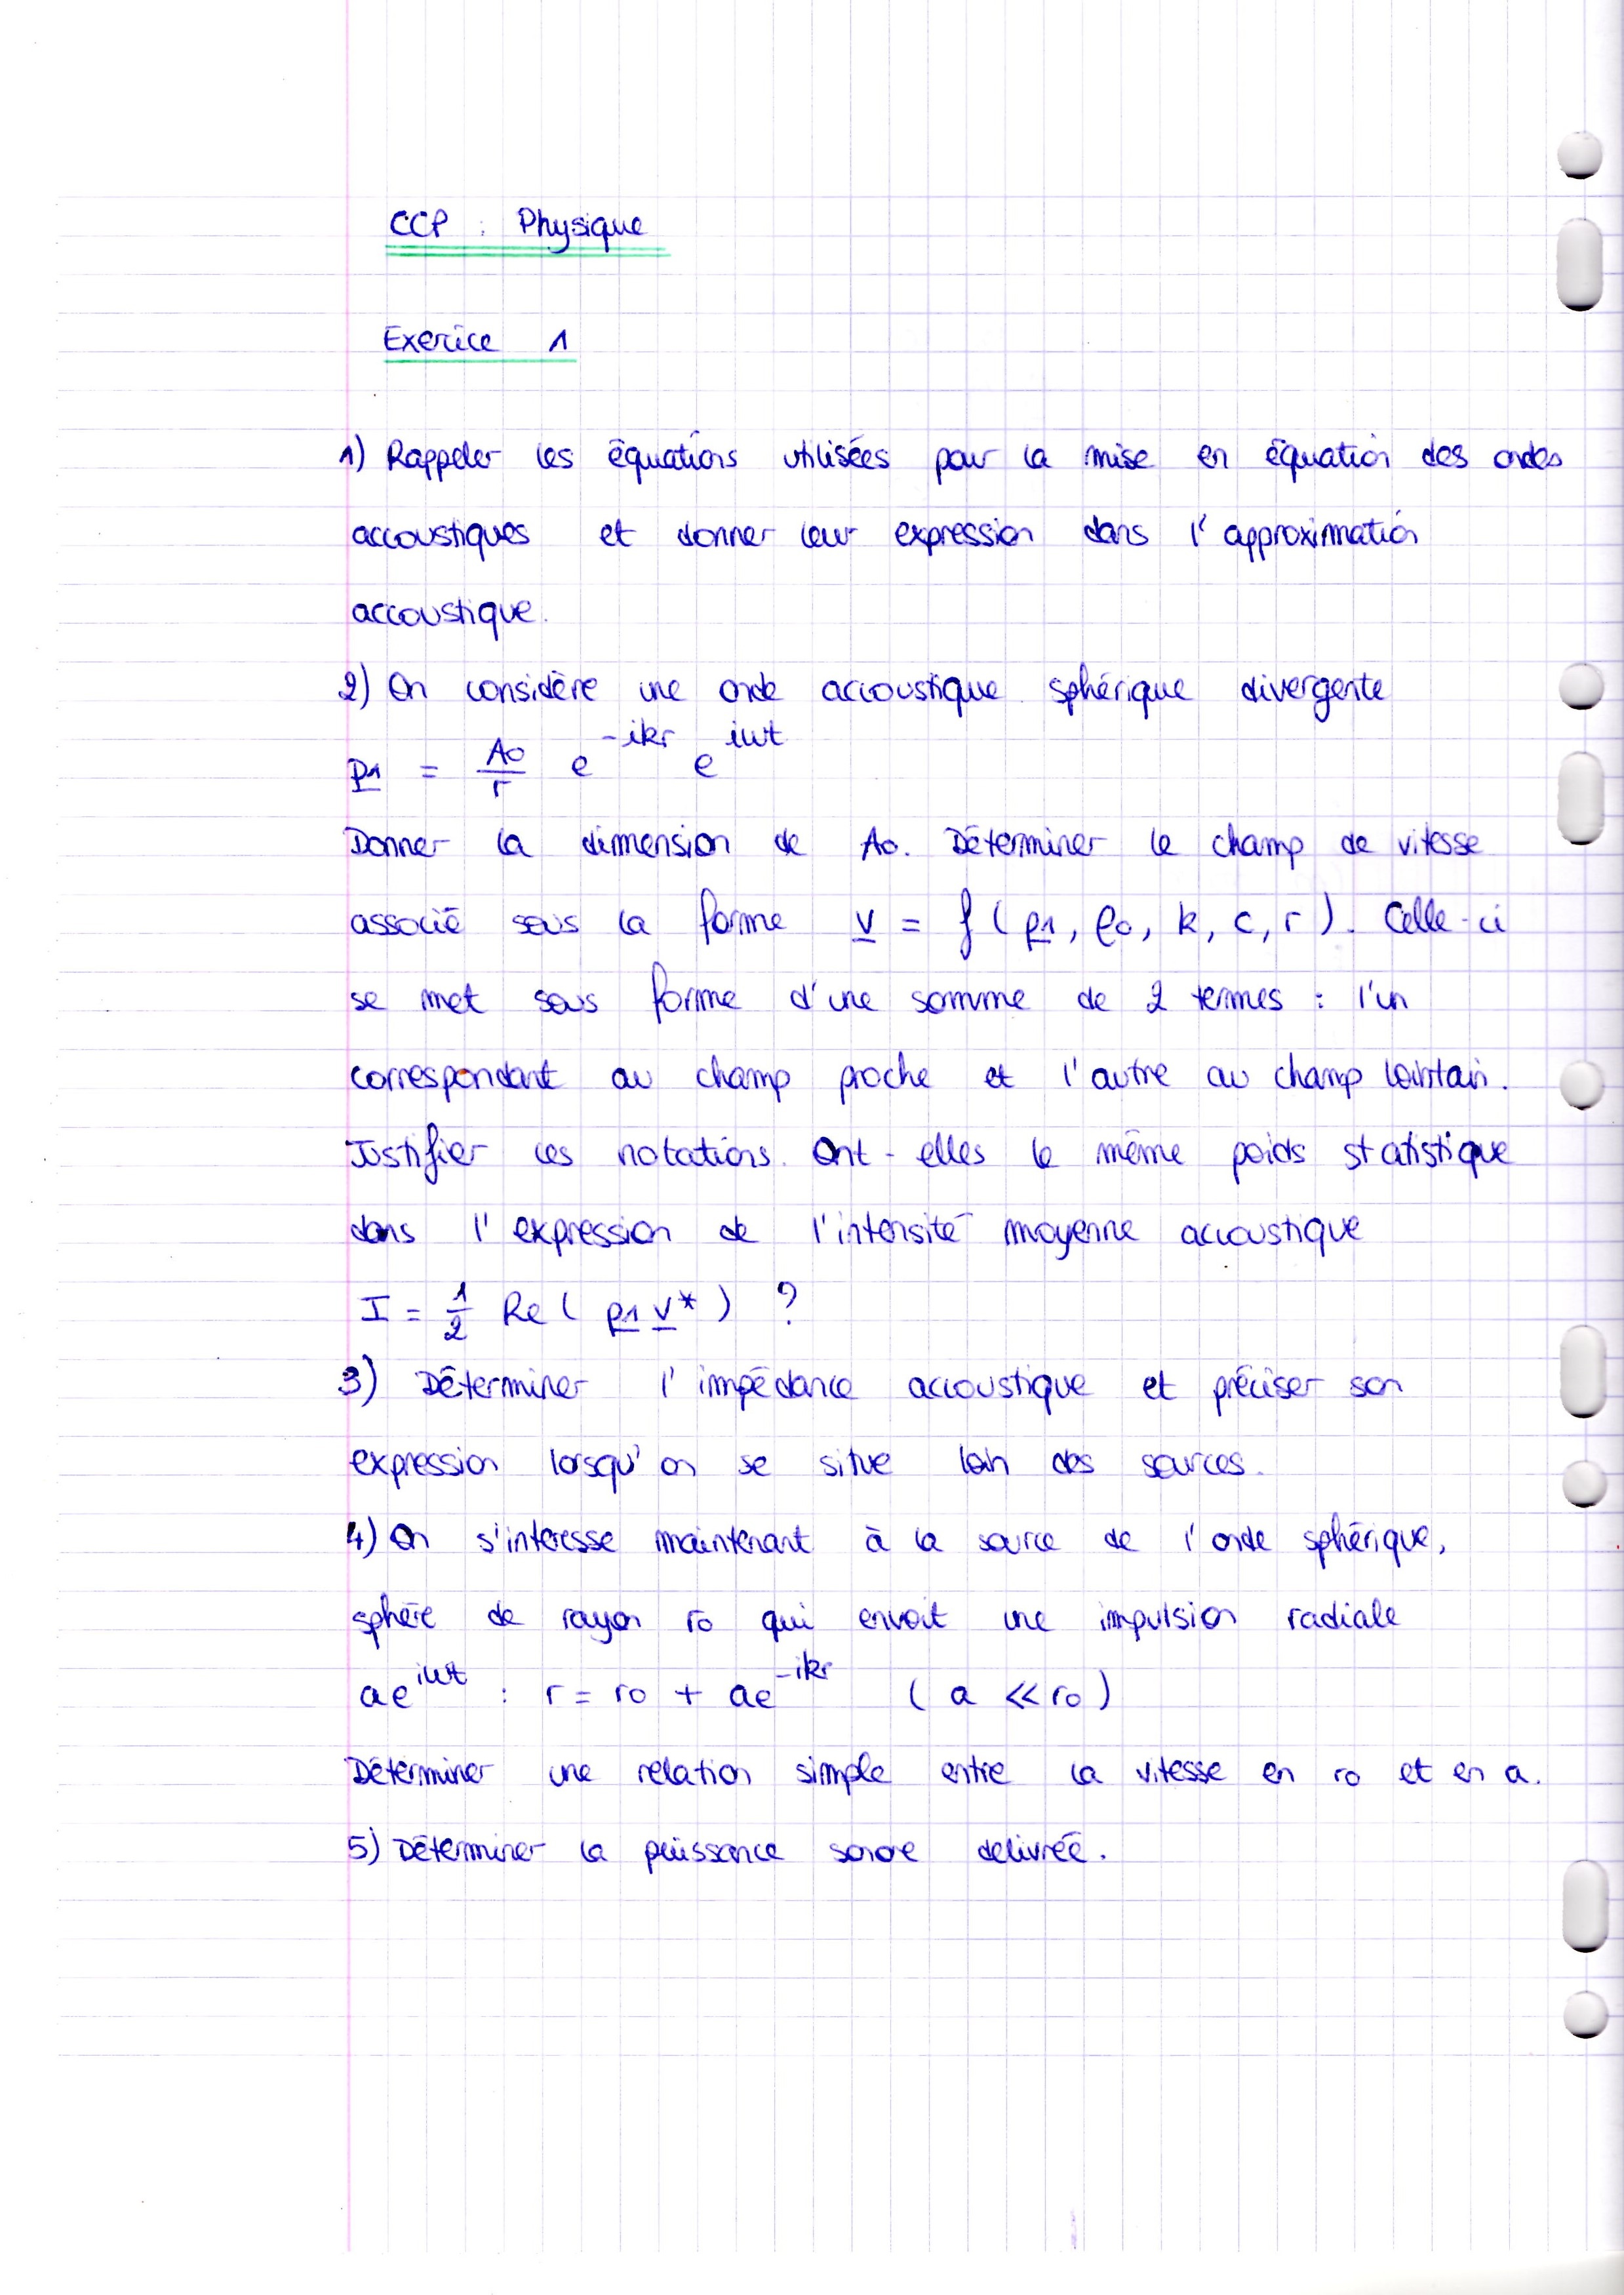 CCP : Physique
Exercice 1
1) Rappeler les équations utilisées pour la mise en équation des ondes
accoustiques et donner leur expression dans l'approximation
accoustique.
2) On considère une onde accoustique sphérique divergente
p1 = A0/r e^-ikr e^iwt
Donner la dimension de A0. Déterminer le champ de vitesse
associé sous la forme v = f ( p1, ρ0, k, c, r ). Celle-ci
se met sous forme d'une somme de 2 termes : l'un
correspondant au champ proche et l'autre au champ lointain.
Justifier ces notations. Ont-elles le même poids statistique
dans l'expression de l'intensité moyenne accoustique
I = 1/2 Re ( p1 v* ) ?
3) Déterminer l'impédance accoustique et préciser son
expression lorsqu'on se situe loin des sources.
4) On s'interesse maintenant à la source de l'onde sphérique,
sphère de rayon r0 qui envoit une impulsion radiale
ae^iwt : r = r0 + ae^-ikr ( a << r0 )
Déterminer une relation simple entre la vitesse en r0 et en a.
5) Déterminer la puissance sonore delivrée.